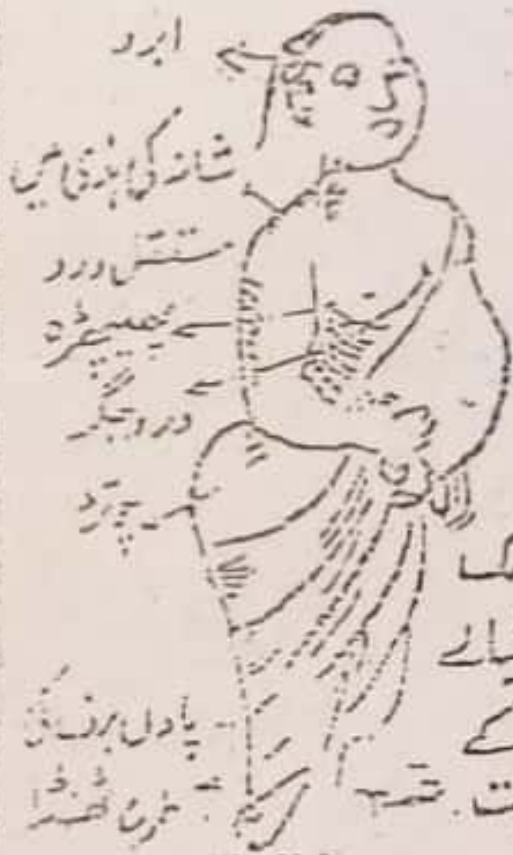 ابرو
شانہ کی ہڈی میں
مستقل درد
پھیپھڑہ
درد جگر
پیڑو
پاؤں برف کی
طرح ٹھنڈا
کے